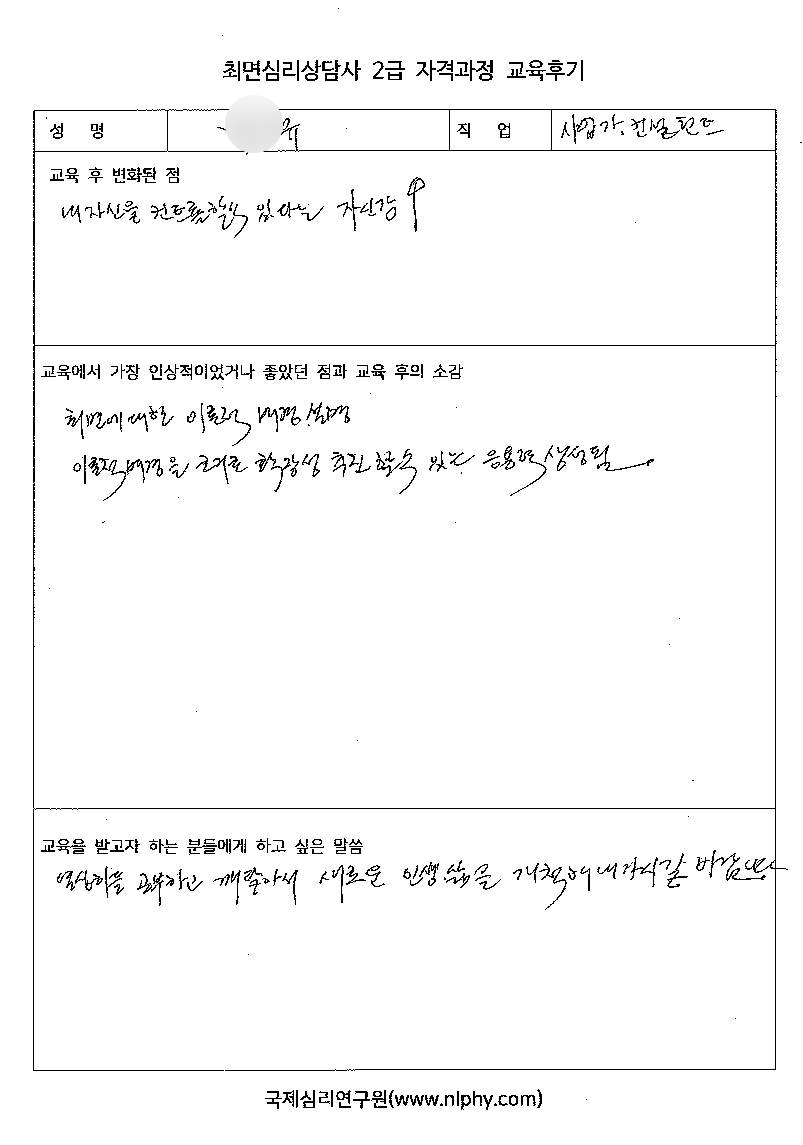 최면심리상담사 2급 자격과정 교육후기
성 명 유 직 업 사업가, 컨설턴트
교육 후 변화된 점
내 자신을 컨트롤할 수 있다는 자신감↑
교육에서 가장 인상적이었거나 좋았던 점과 교육 후의 소감
최면에 대한 이론적 배경 설명
이론적 배경을 근거로 확장성 추진 할 수 있는 응용력 생성됨.
교육을 받고자 하는 분들에게 하고 싶은 말씀
열심히들 공부하고 깨달아서 새로운 인생 삶을 개척해 내가시길 바랍니다
국제심리연구원(www.nlphy.com)